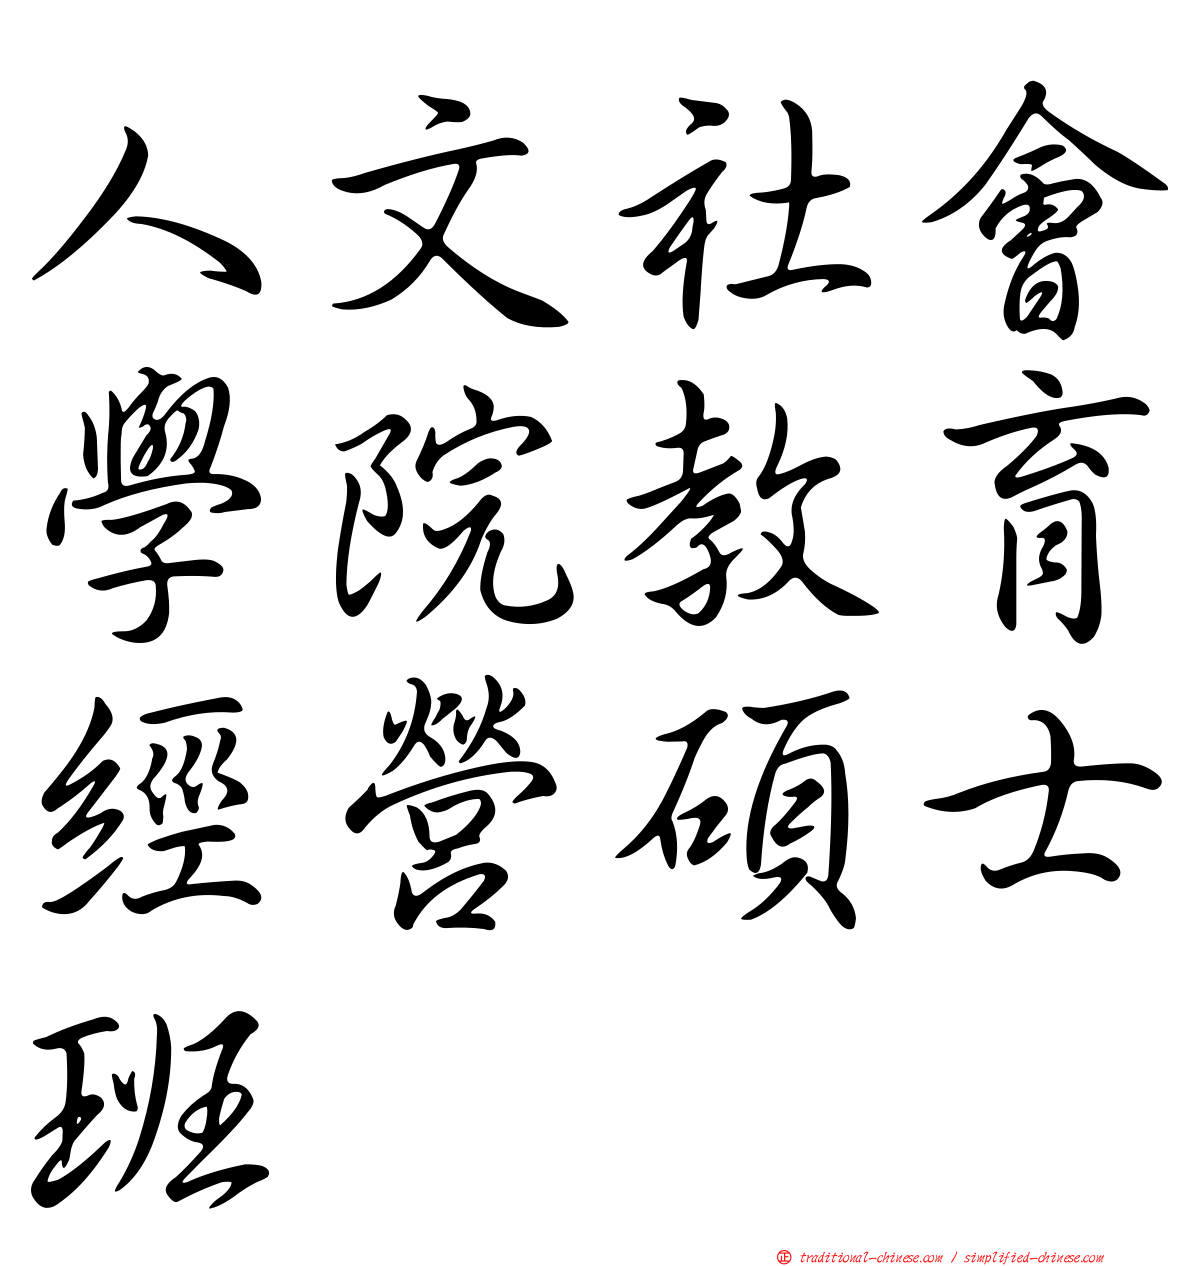 人文社會
學院教育
經營碩士
班
正 traditional-chinese.com / simplified-chinese.com